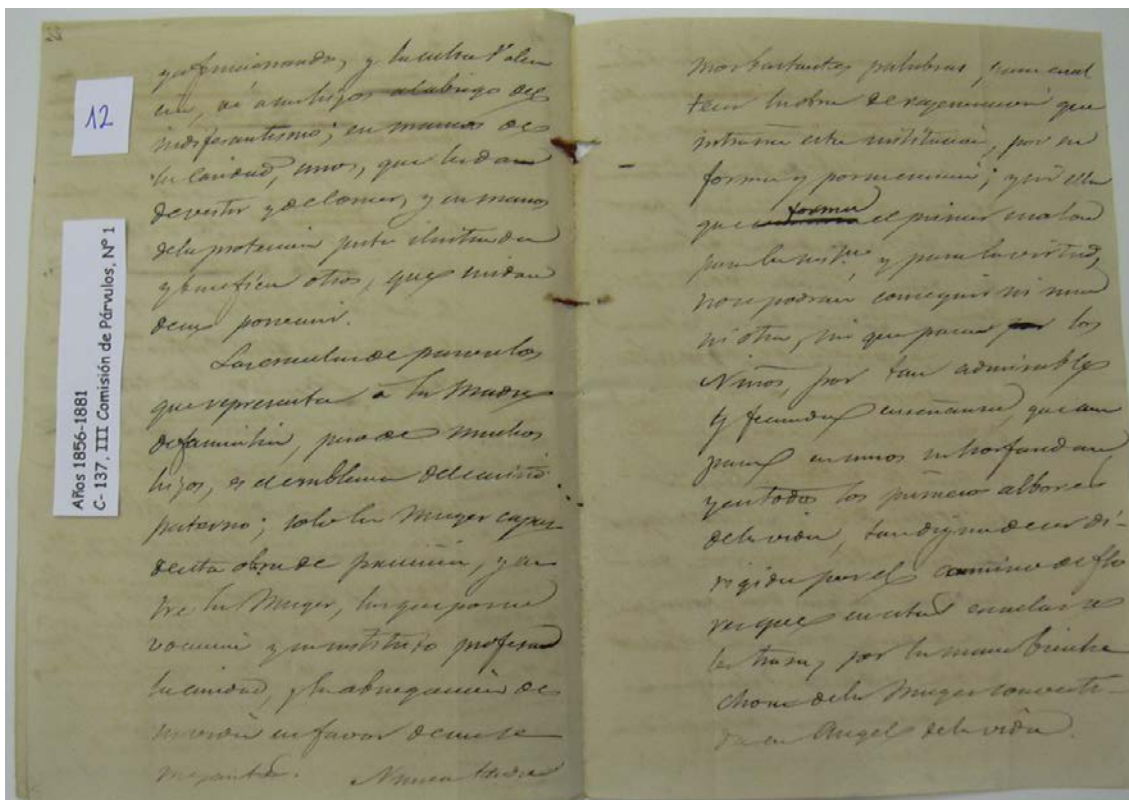 12
Años 1856-1881
C- 137, III Comisión de Párvulos, Nº 1
y la culta Valen
cia, vé á sus hijos al abrigo del
indiferentismo; en manos de
la Caridad, unos, que les dan
de vestir y de comer, y en manos
de la proteccion justa ilustrada
y benéfica otros, que cuidan
de su porvenir.
Las escuelas de parvulos
que representa á la Madre
de familia, pero de muchos
hijos, es el emblema del cariño
paterno; solo la Muger capaz
de esta obra de y en
tre la Muger, las que por su
vocacion y su instituto profesan
la caridad, y la abnegacion de
su vida en favor de sus se
mejantes. Nunca
mos bastantes palabras, para enal
tecer la obra de que
esta institucion, por su
forma y y sin ella
que forma el primer
para la y para la virtud,
no se podran conseguir ni una
ni otra, sin que pasen por los
Niños, por tan admirables
y fecundas enseñanzas, que
y en todos los primeros albores
de la vida, tan digna de ser di-
rigida por el camino de flo
res que en estas escuelas se
les traza, por la mano bienhe
chora de la Muger converti-
da en Angel de la vida.